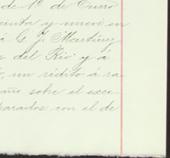 de 1º de Enero
cinta y nueve en
á C. J. Martinez
s del Rio y á
, un rédito á ra
año sobre el esce
parados con el de